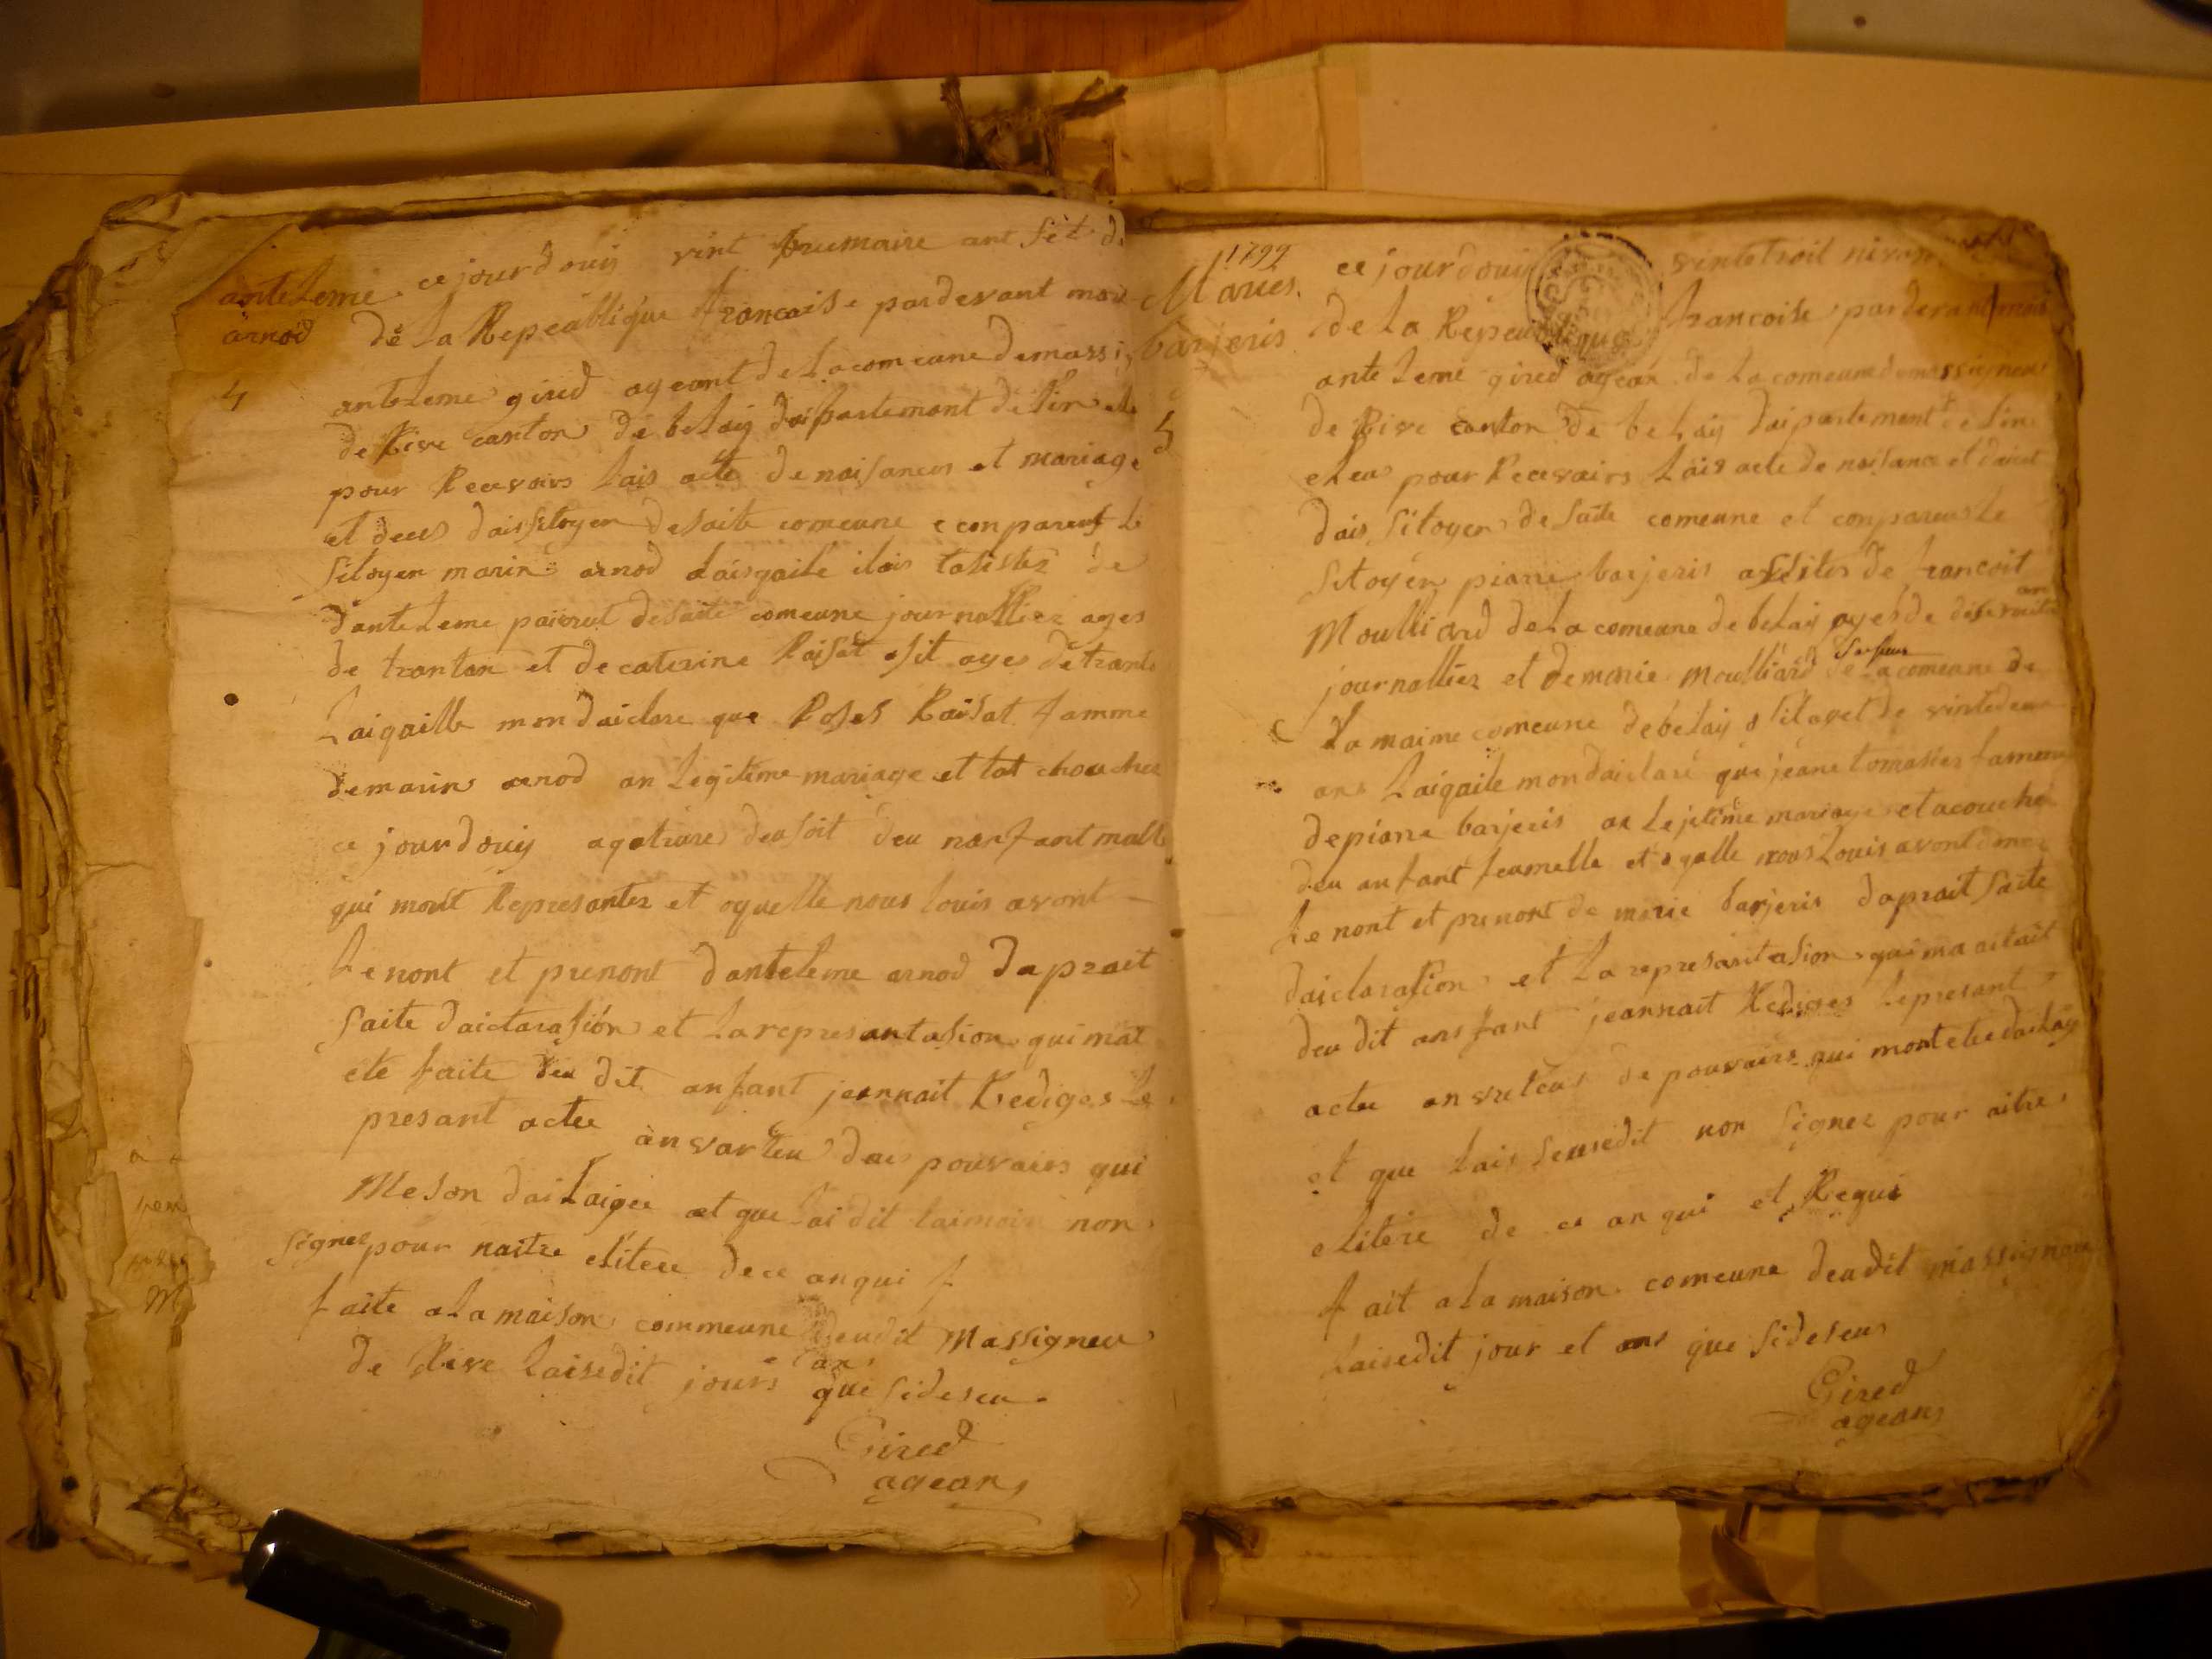 anteleme
arnod
4
ce jourdouis vint brumaire ant set d
de la Repeablique francaise pardevant moi
anteleme gired ageant de la comeune demassi
de Rive canton de belay daipartemant de lin ele
pour Recevoirs lais acte de naisances et mariage
et deces dais sitoyen desaite comeune e conparent le
sitoyen marin arnod laigaile ilais
danteleme desaite comeune journallier ages
de trantan et de caterine Raisat ages de trante
Laigaille mon daiclare que Roses Raisat famme
demarin arnod an legitime mariage et tat chouchee
ce jourdouis deu soit deu nanfant malle
qui mont Represanter et oquelle nous louis avont
le nont et prenont danteleme arnod daprait
saite daiclarasion et la represantasion qui mat
ete faite deu dit anfant jeannait Rediges le
presant actee an varteu dais pouvairs qui
Meson dailaigee et que lai dit taimoin non
signer pour naitre elitere de ce anqui f
faite a la maison commeune deudit Massigneu
de Rive laisedit jours an que sideseu
Gired
ageans
1799
Maries
barjeris
5
ce jourdouis vintetroit nivon
de la Repeublique francoise pardevant moi
anteleme gired agean de la comeune de massigneus
de Rive canton de belay daipartemant de lin
eleu pour Recevairs lais acte de naisance et daices
dais sitoyen de saite comeune et conpareus le
Sitoyen piarre barjeris de francoit
Moulliard de la comeune de belay ages de
an
journallier et demarie moulliard de la comeune de
la maime comeune debelay de vintedeus
ans laigaile mondaiclare que jeane tomasier famme
depiarre barjeris an lejitime mariage et acouche
deu anfant feumelle et a qualle nous louis avont
le nont et prenont de marie barjeris daprait saite
daiclarasion et la represantasion qui ma aitait
deu dit ansfant jeannait Rediges lepresant
actee an vreteus de pouvairs qui mont ete dailaig
et que lais seusedit non signer pour aitre
elitere de ce an qui et Requi
fait a la maison comeune deudit massignon
laisedit jour et ans que sideseus
Gired
ageans